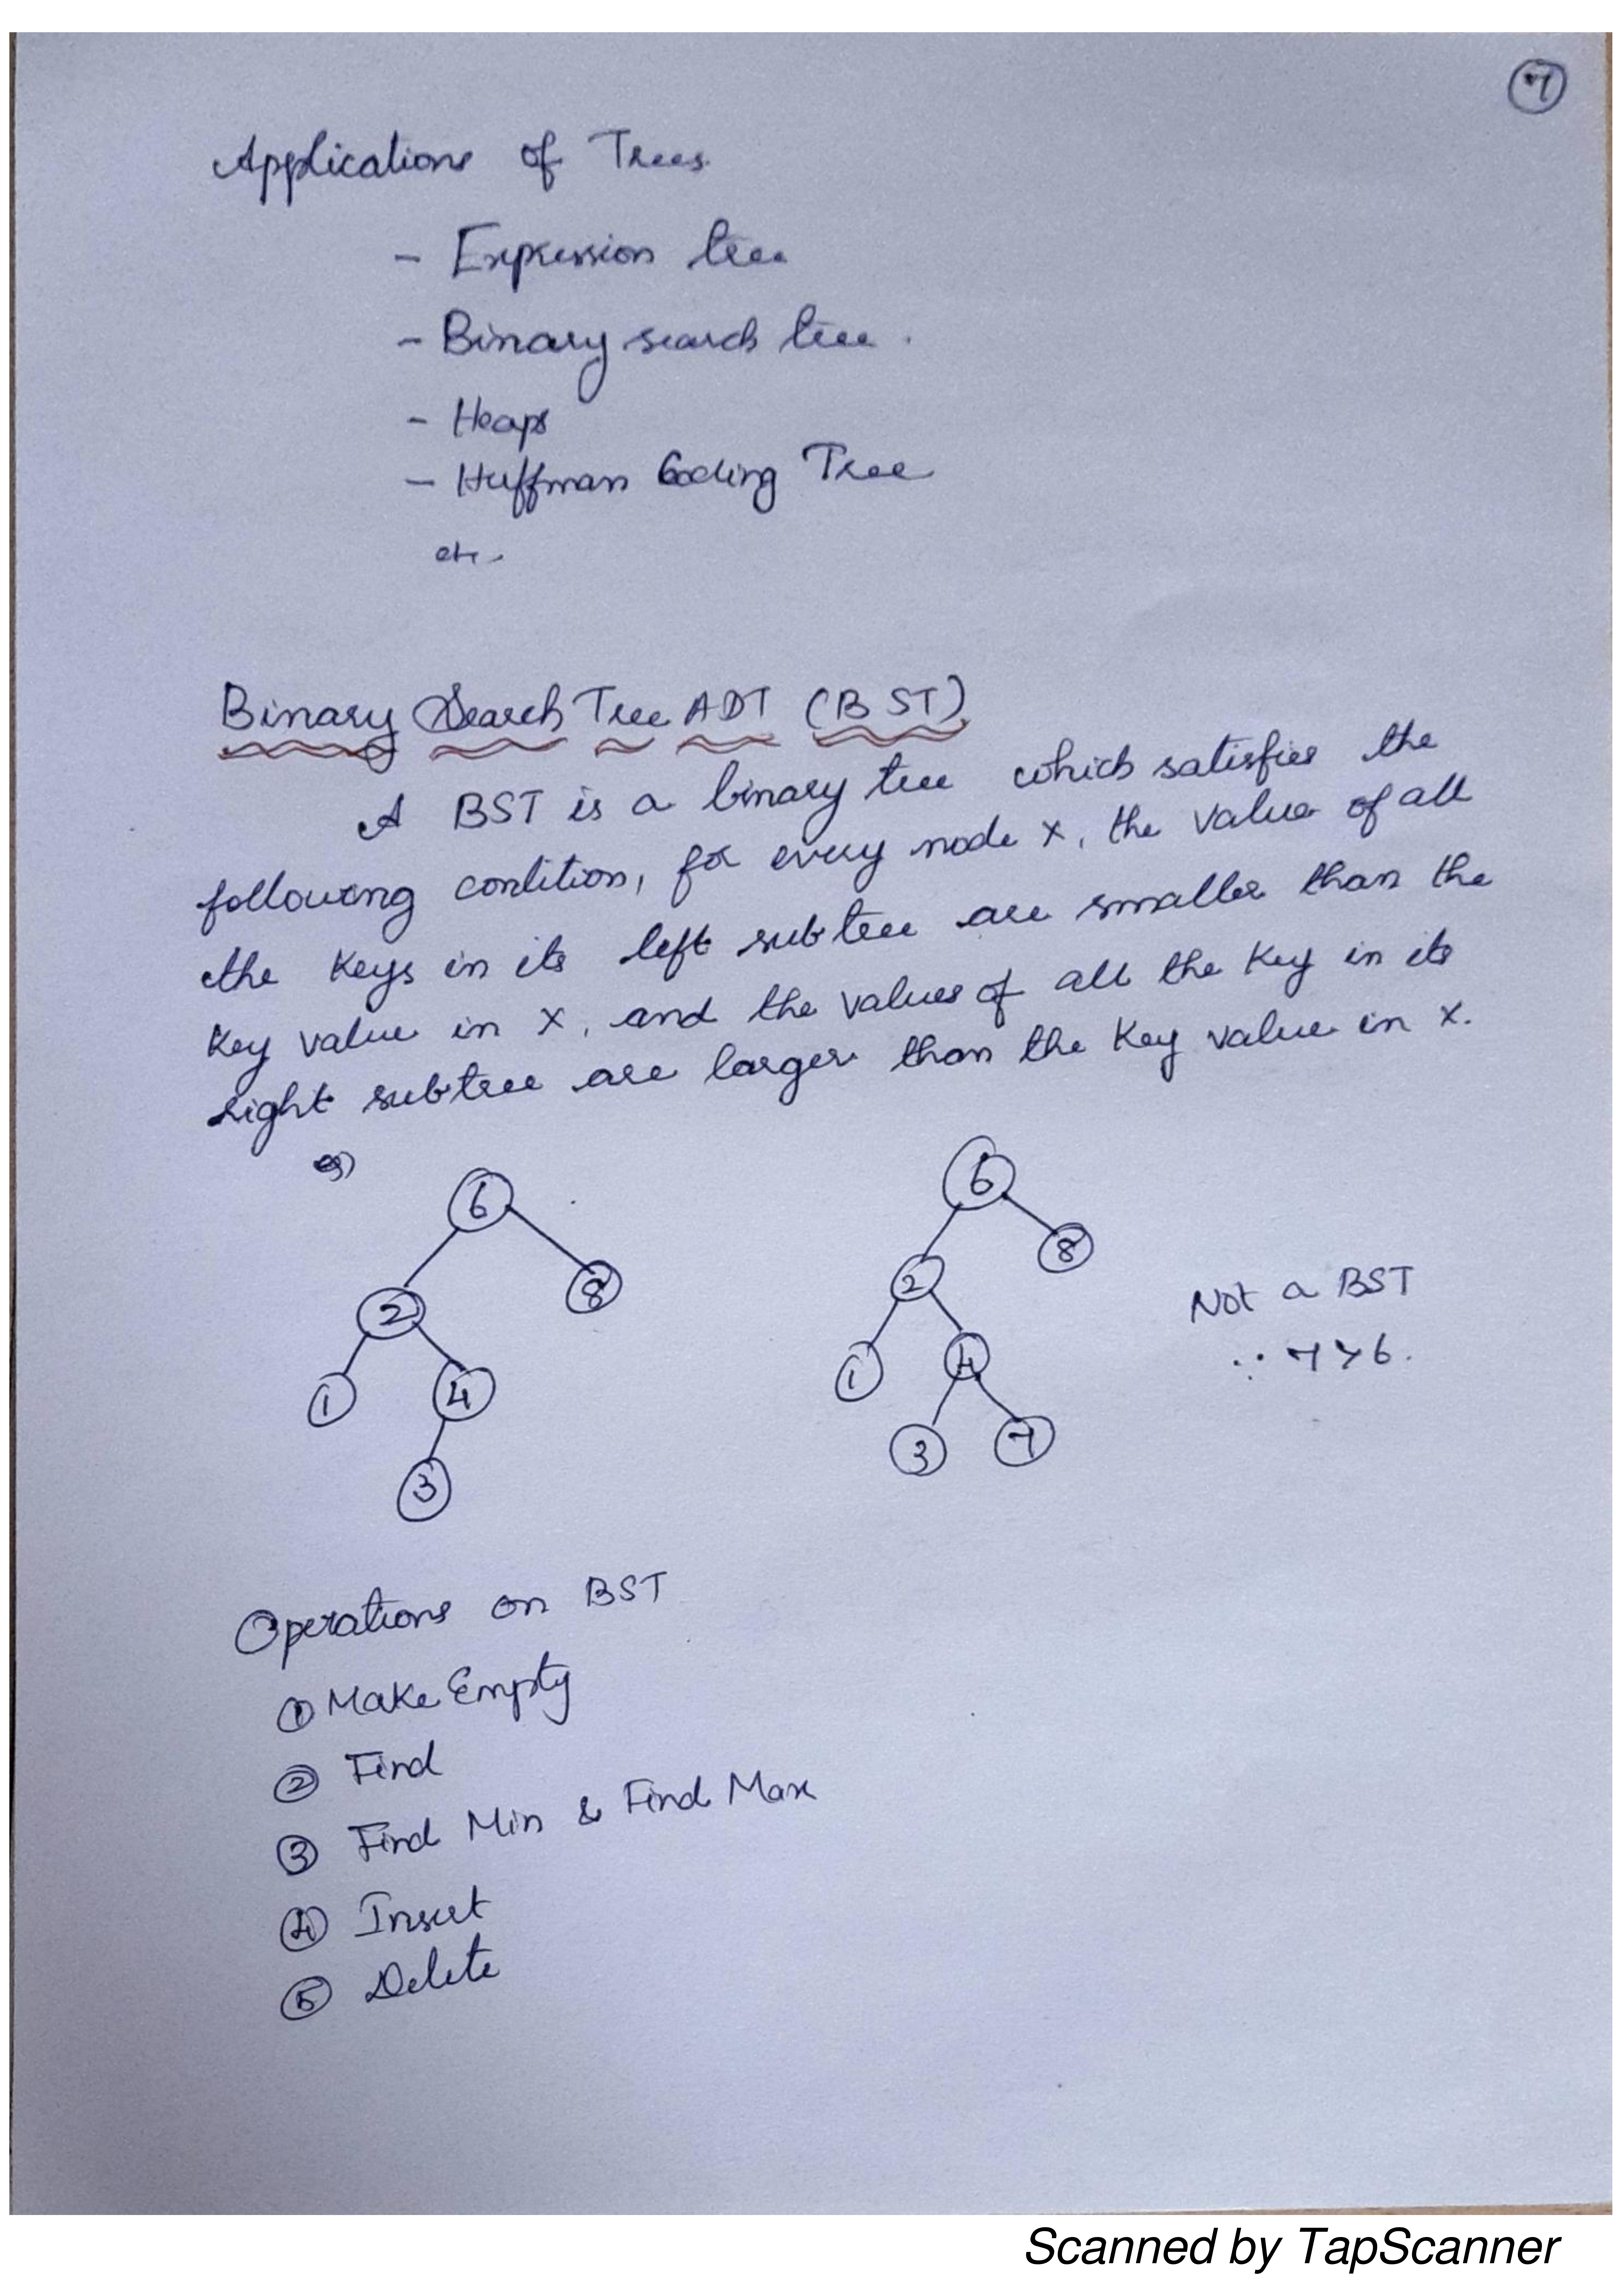 7
Applications of Trees
- Expression tree
- Binary search tree.
- Heaps
- Huffman Coding Tree
etc.
Binary Search Tree ADT (BST)
A BST is a binary tree which satisfies the
following condition, for every node x, the value of all
the keys in its left subtree are smaller than the
key value in x, and the values of all the key in its
right subtree are larger than the key value in x.
eg)
6
6
8
8
2
2
Not a BST
∵ 7 > 6.
1
4
1
4
3
3
7
Operations on BST
① Make Empty
② Find
③ Find Min & Find Max
④ Insert
⑤ Delete
Scanned by TapScanner